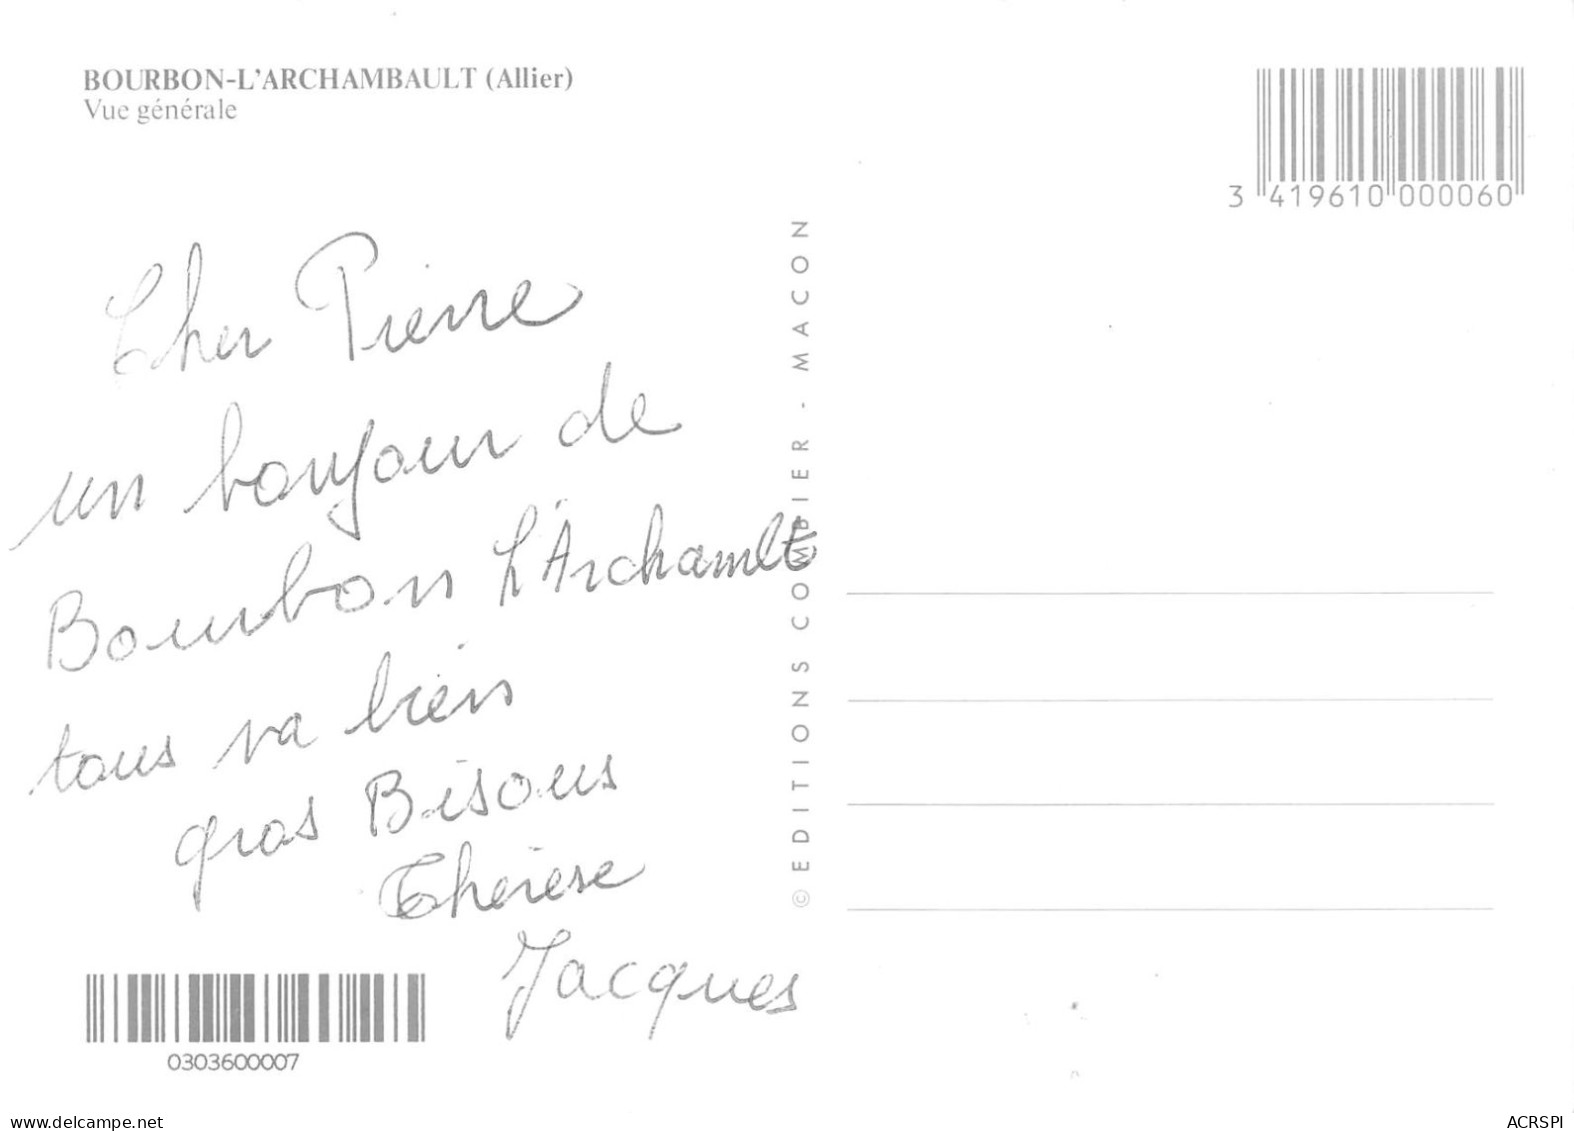 BOURBON-L'ARCHAMBAULT (Allier)
Vue générale
3 419610 000060
Cher Pierre
un bonjour de
Bourbon L'Archamlt
tous va bien
gros Bisous
Thérèse
Jacques
© EDITIONS COMBIER - MACON
0303600007
delcampe.net
ACRSPI